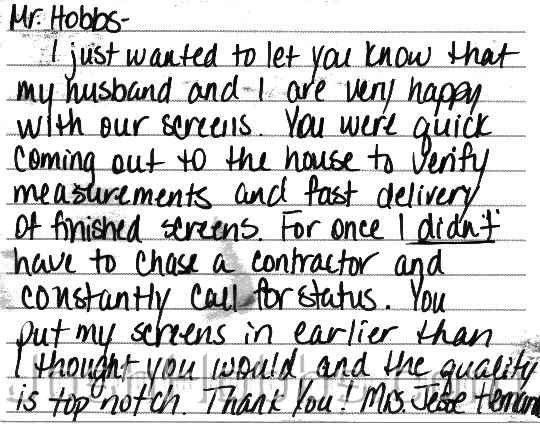 Mr. Hobbs-
I just wanted to let you know that
my husband and I are very happy
with our screens. You were quick
coming out to the house to verify
measurements and fast delivery
of finished screens. For once I didn't
have to chase a contractor and
constantly call for status. You
put my screens in earlier than
I thought you would and the quality
is top notch. Thank You! Mrs. Jesse